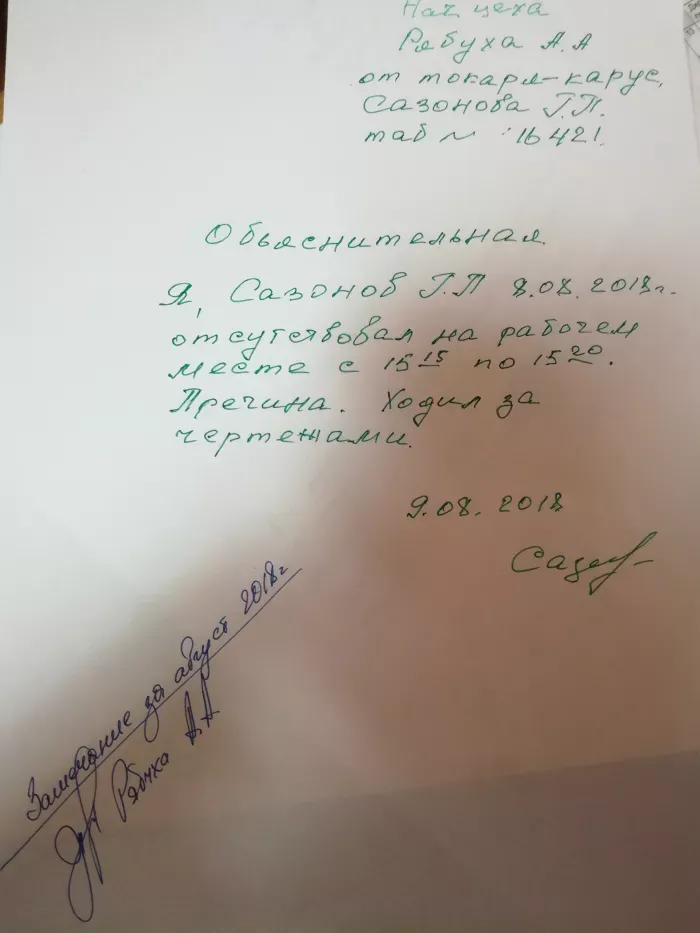 Нач. цеха
Рябуха А.А
от токаря-карус.
Сазонова Г.П.
таб № 16421.
Обьяснительная.
Я, Сазонов Г.П 8.08.2018г.
отсутствовал на рабочем
месте с 15 15 по 15 20.
Пречина. Ходил за
чертежами.
9.08.2018
Замечание за август 2018г
Рябуха А.А